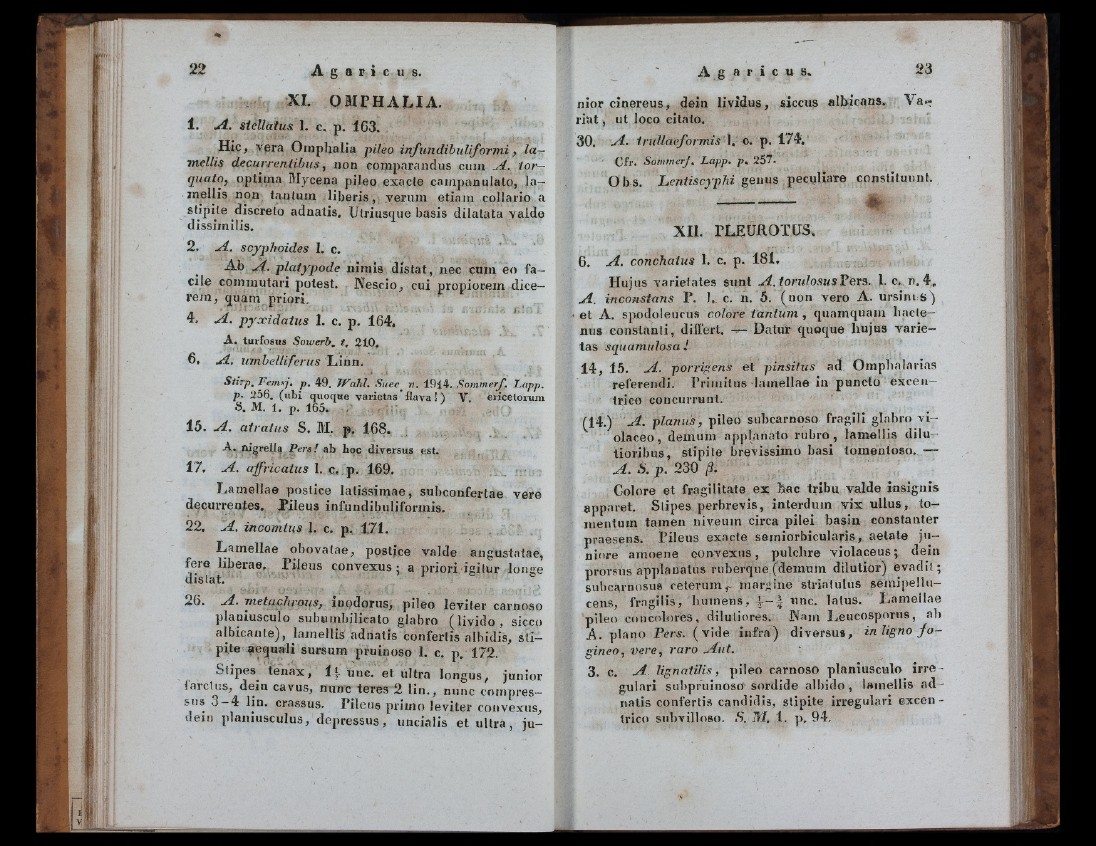 22 Agaricus.
XI. OMPHALIA.
1. A. stellatus l. c. p. 163.
Hic, vera Omphalia pileo infundibuliformi, la-
mellis decurrentibus, non comparandus cum A. tor-
quato, optima Mycena pileo exacte campanulato, la-
mellis non tantum liberis, verum etiam collario a
stipite discreto adnatis. Utriusque basis dilatata valde
dissimilis.
2. A. scyphoides l. c.
Ab A. platypode nimis distat, nec cum eo fa-
cile commutari potest. Nescio, cui propiorem dice-
rem, quam priori.
4. A. pyxidatus l. c. p. 164.
A. turfosus Sowerb. t. 210.
6. A. umbelliferus Linn.
Stirp. Femsj. p. 49. Wahl. Suec. n. 1944. Sommerf. Lapp.
p. 256. (ubi quoque varietas flava!) V. ericetorum
S. M. 1. p. 165.
15. A. atratus S. M. p. 168.
A. nigrella Pers! ab hoc diversus est.
17. A. affricatus l. c. p. 169.
Lamellae postice latissimae, subconfertae vere
decurrentes. Pileus infundibuliformis.
22. A. incomtus l. c. p. 171.
Lamellae obovatae, postice valde angustatae,
fere liberae. Pileus convexus; a priori igitur longe
distat.
26. A. metachrous, inodorus, pileo leviter carnoso
planiusculo subumbilicato glabro (livido, sicco
albicante), lamellis adnatis confertis albidis, sti-
pite aequali sursum pruinoso l. c. p. 172.
Stipes tenax, 1½ unc. et ultra longus, junior
farctus, dein cavus, nunc teres 2 lin., nunc compres-
sus 3-4 lin. crassus. Pileus primo leviter convexus,
dein planiusculus, depressus, uncialis et ultra, ju-
Agaricus. 23
nior cinereus, dein lividus, siccus albicans. Va-
riat, ut loco citato.
30. A. trullaeformis l. c. p. 174.
Cfr. Sommerf. Lapp. p. 257.
Obs. Lentiscyphi genus peculiare constituunt.
XII. PLEUROTUS.
6. A. conchatus l. c. p. 181.
Hujus varietates sunt A. torulosus Pers. l. c. n. 4.
A. inconstans P. l. c. n. 5. (non vero A. ursinus)
et A. spodoleucus colore tantum, quamquam hacte-
nus constanti, differt. — Datur quoque hujus varie-
tas squamulosa!
14, 15. A. porrigens et pinsitus ad Omphalarias
referendi. Primitus lamellae in puncto excen-
trico concurrunt.
(14.) A. planus, pileo subcarnoso fragili glabro vi-
olaceo, demum applanato rubro, lamellis dilu-
tioribus, stipite brevissimo basi tomentoso. —
A. S. p. 230 β.
Colore et fragilitate ex hac tribu valde insignis
apparet. Stipes perbrevis, interdum vix ullus, to-
mentum tamen niveum circa pilei basin constanter
praesens. Pileus exacte semiorbicularis, aetate ju-
niore amoene convexus, pulchre violaceus; dein
prorsus applanatus ruberque (demum dilutior) evadit;
subcarnosus ceterum, margine striatulus semipellu-
cens, fragilis, humens, unc. latus. Lamellae
pileo concolores, dilutiores. Nam Leucosporus, ab
A. plano Pers. (vide infra) diversus, in ligno fa-
gineo, vere, raro Aut.
3. c. A. lignatilis, pileo carnoso planiusculo irre-
gulari subpruinoso sordide albido, lamellis ad-
natis confertis candidis, stipite irregulari excen-
trico subvilloso. S. M. 1. p. 94.